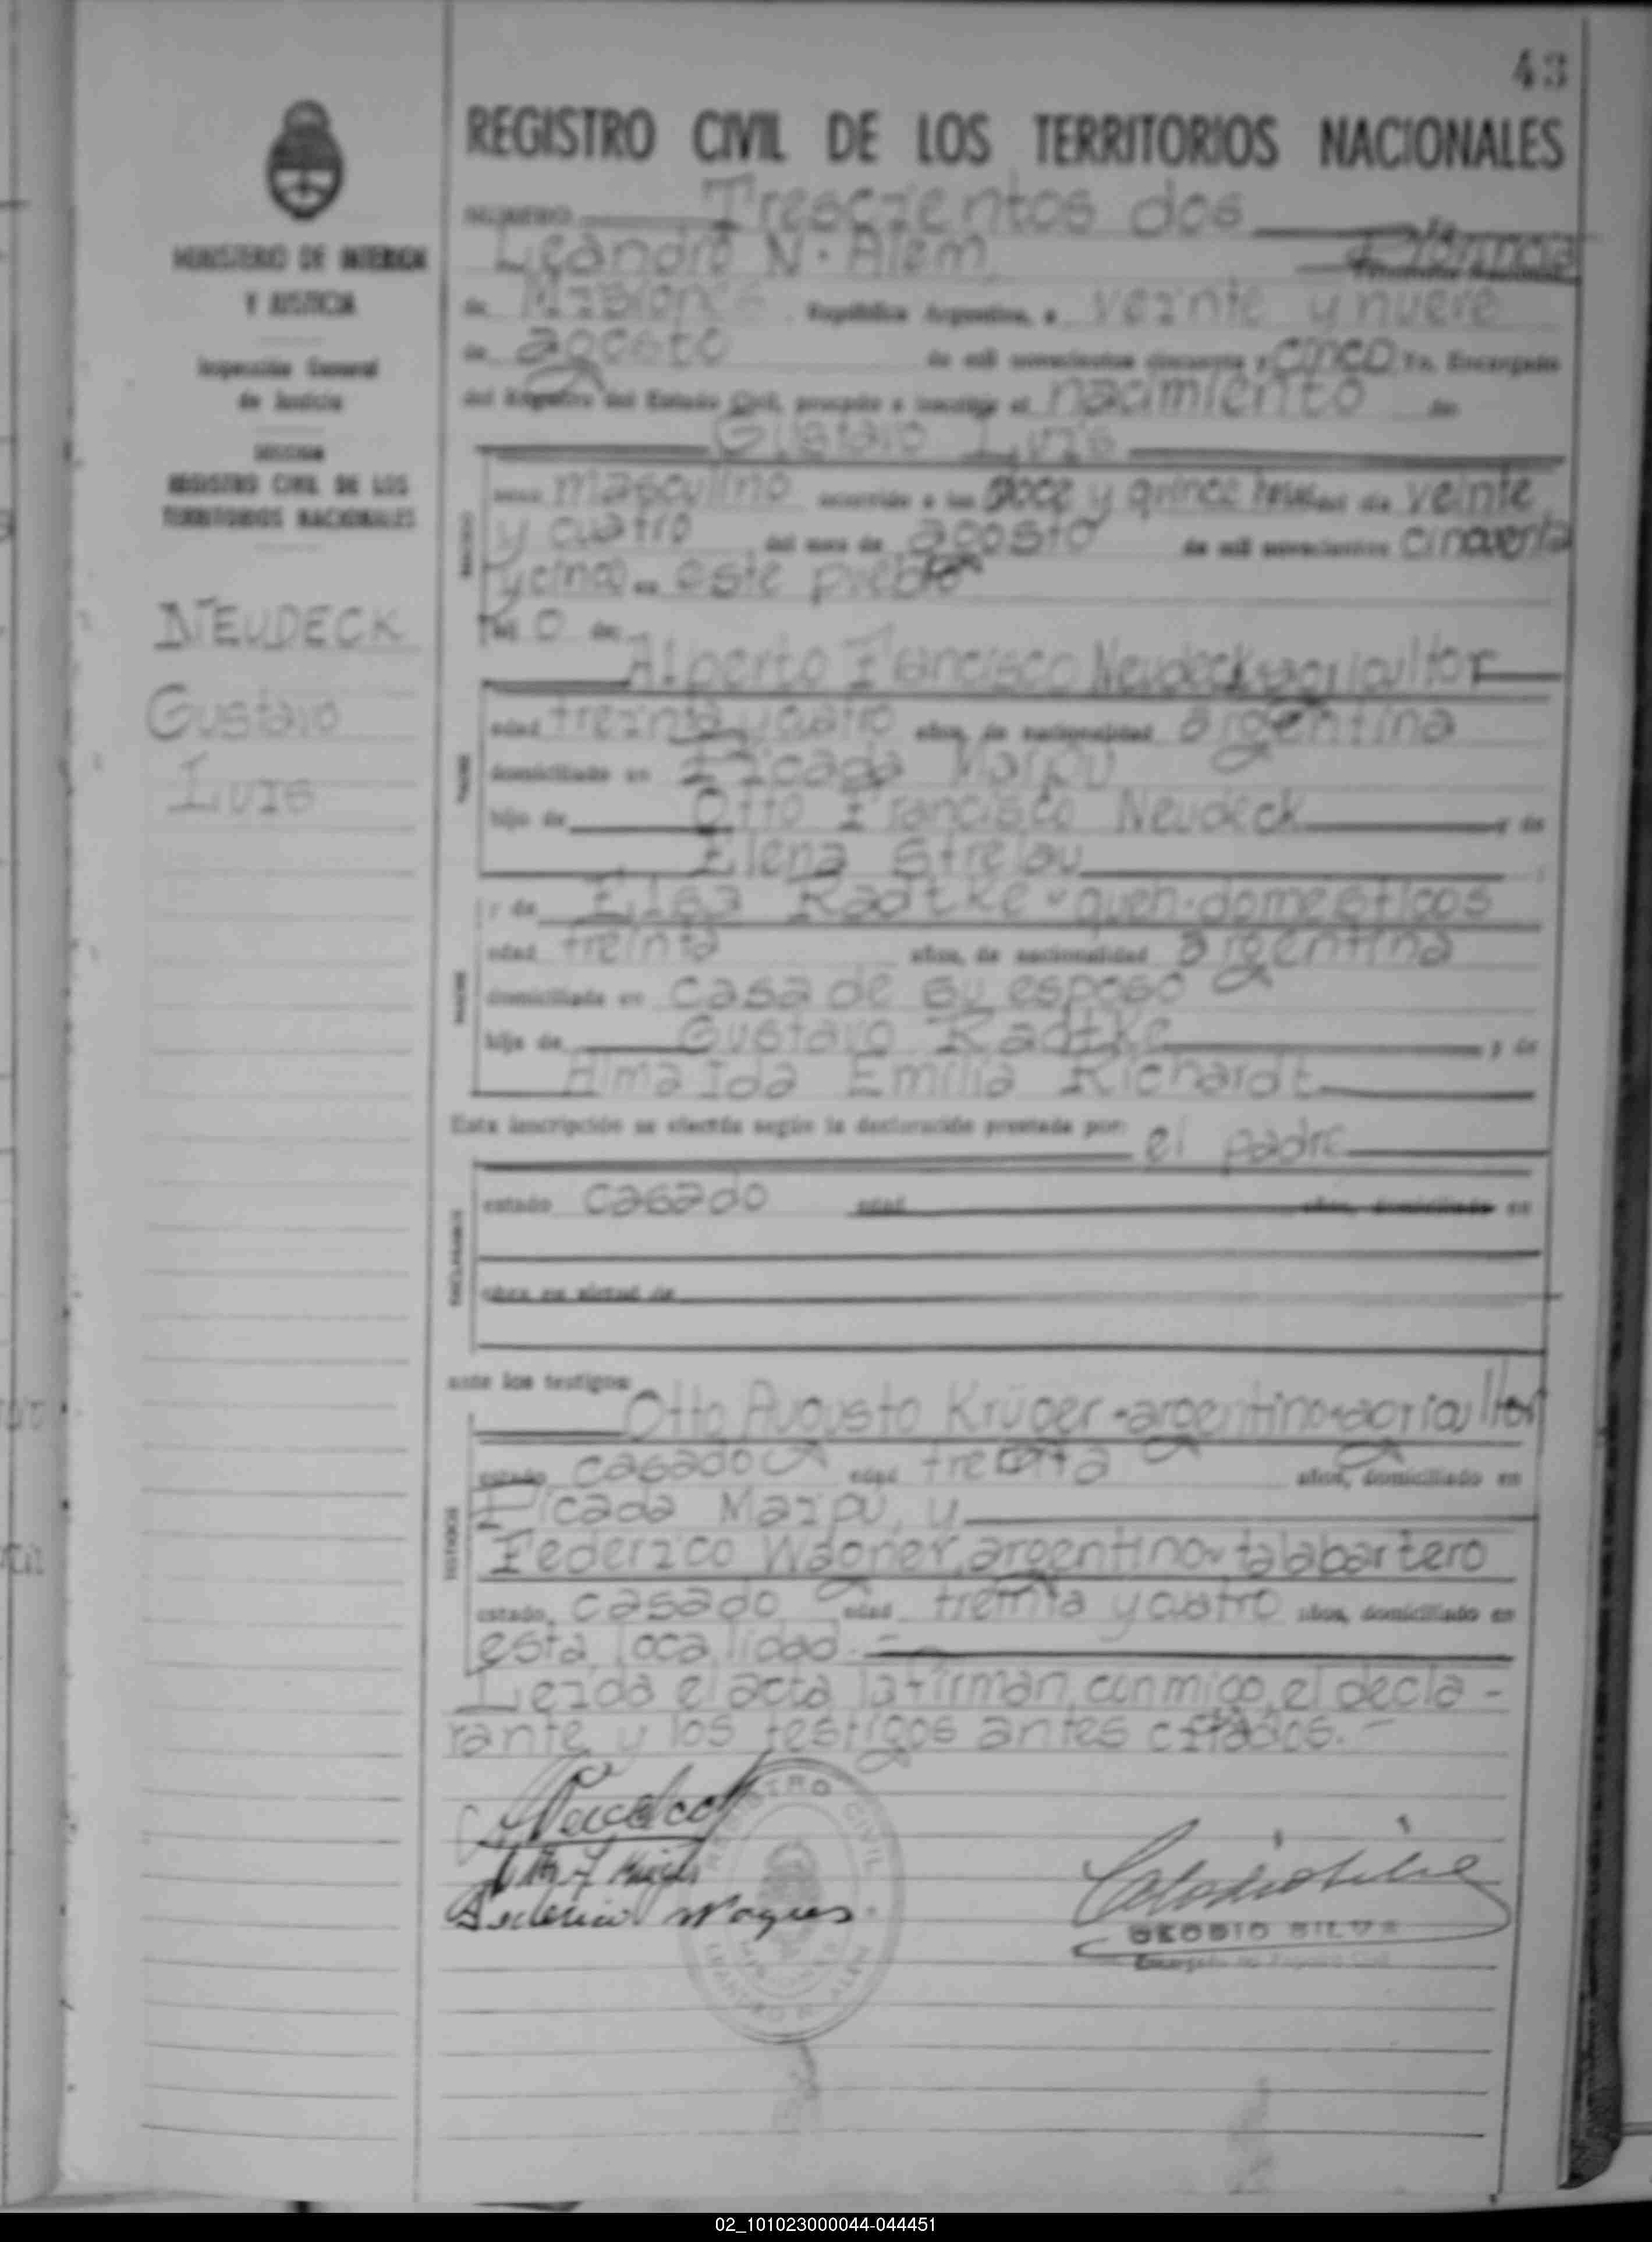 43
REGISTRO CIVIL DE LOS TERRITORIOS NACIONALES
NUMERO Trescientos dos
Leandro N. Alem Provincia
de Misiones República Argentina, a veinte y nueve
de agosto de mil novecientos cincuenta y cinco Yo, Encargado
del Registro del Estado Civil, procedo a inscribir el nacimiento de
Gustavo Luis
sexo masculino ocurrido a las doce y quince horas del día veinte
y cuatro del mes de agosto de mil novecientos cincuenta
y cinco en este pueblo
hijo de:
Alberto Francisco Neudeck agricultor
edad treinta y cuatro años, de nacionalidad argentina
domiciliado en Picada Maipú
hijo de Otto Francisco Neudeck y de
Elena Strelau
y de Elsa Radtke - queh. domésticos
edad treinta años, de nacionalidad argentina
domiciliada en casa de su esposo
hija de Gustavo Radtke y de
Alma Ida Emilia Richardt
Esta inscripción se efectúa según la declaración prestada por: el padre
estado casado edad años, domiciliado en
obra en virtud de
ante los testigos:
Otto Augusto Krüger - argentino - agricultor
estado casado edad treinta años, domiciliado en
Picada Maipú, y
Federico Wagner, argentino - talabartero
estado casado edad treinta y cuatro años, domiciliado en
esta localidad. -
Leida el acta la firman conmigo, el decla-
rante y los testigos antes citados. -
MINISTERIO DE INTERIOR
Y JUSTICIA
Inspección General
de Justicia
SECCION
REGISTRO CIVIL DE LOS
TERRITORIOS NACIONALES
NEUDECK
Gustavo
Luis
NACIDO
PADRE
MADRE
DECLARANTE
TESTIGOS
Neudeck
Federico Wagner
REGISTRO CIVIL
LEANDRO N. ALEM
SILVA
Encargado del Registro Civil
02_101023000044-044451